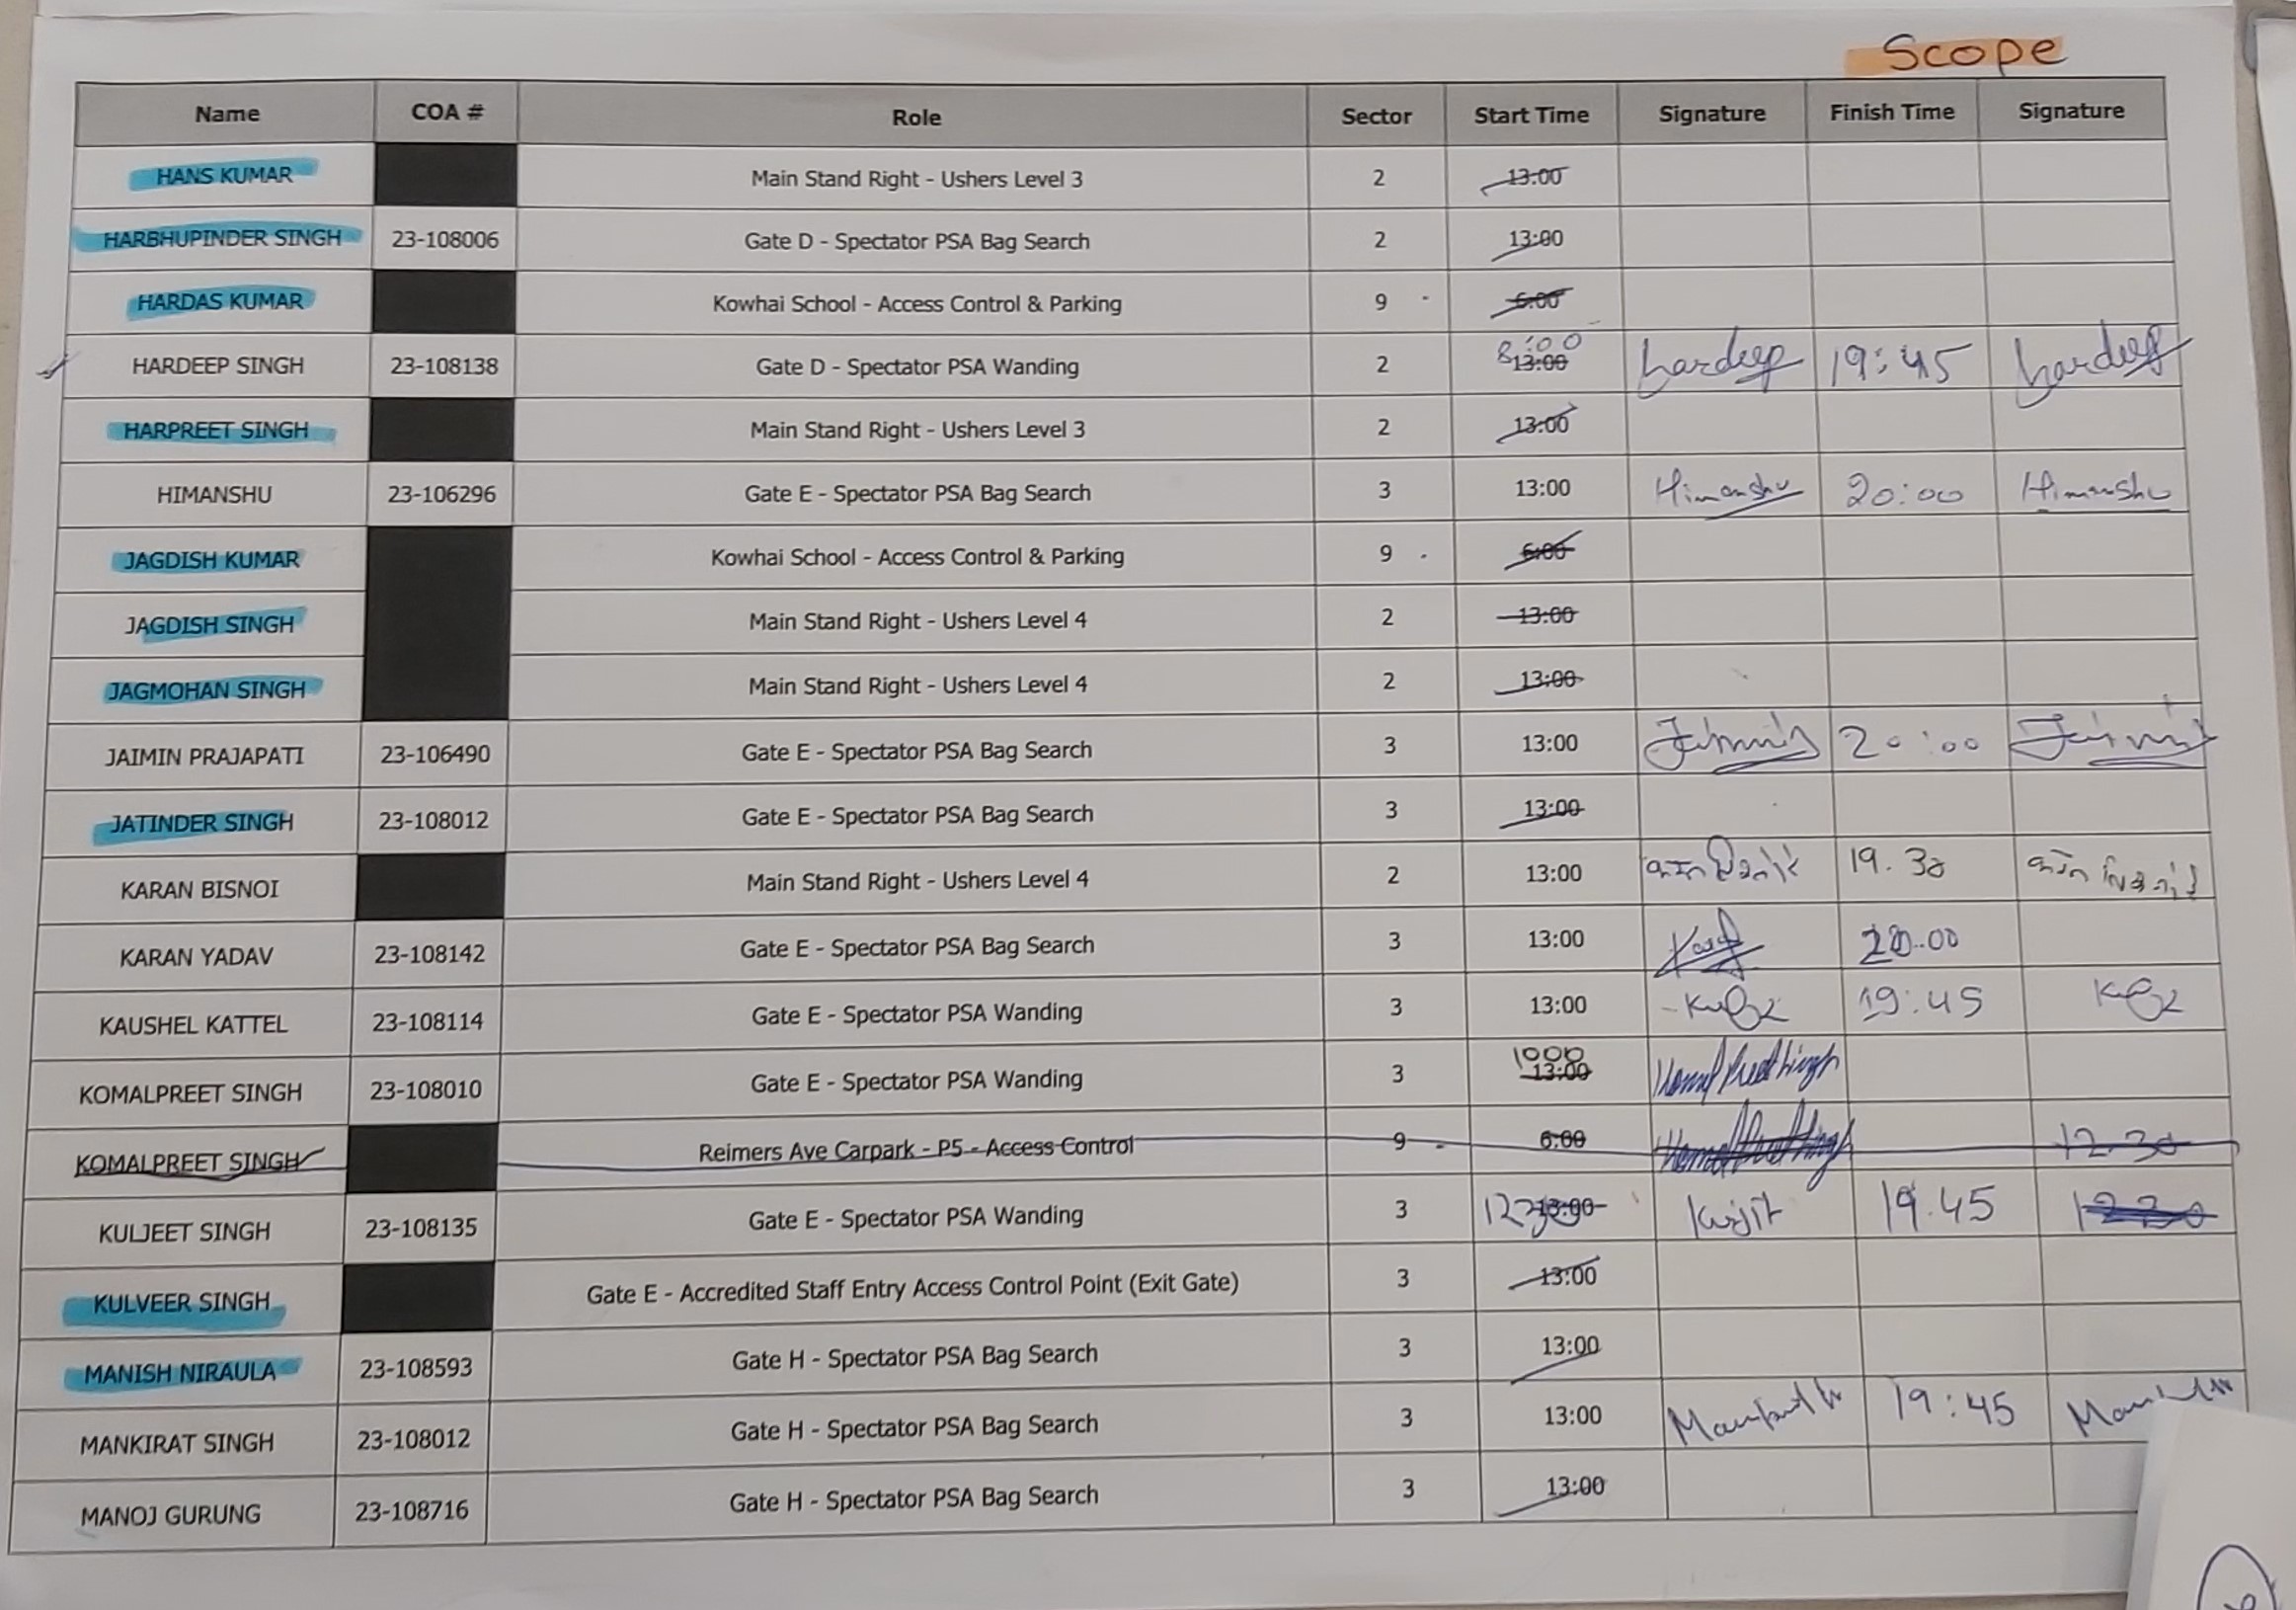 Scope
Name COA # Role Sector Start Time Signature Finish Time Signature
HANS KUMAR Main Stand Right - Ushers Level 3 2 13:00
HARBHUPINDER SINGH 23-108006 Gate D - Spectator PSA Bag Search 2 13:00
HARDAS KUMAR Kowhai School - Access Control & Parking 9 6:00
HARDEEP SINGH 23-108138 Gate D - Spectator PSA Wanding 2 8:00 13:00 hardeep 19:45 hardeep
HARPREET SINGH Main Stand Right - Ushers Level 3 2 13:00
HIMANSHU 23-106296 Gate E - Spectator PSA Bag Search 3 13:00 Himanshu 20:00 Himanshu
JAGDISH KUMAR Kowhai School - Access Control & Parking 9 6:00
JAGDISH SINGH Main Stand Right - Ushers Level 4 2 13:00
JAGMOHAN SINGH Main Stand Right - Ushers Level 4 2 13:00
JAIMIN PRAJAPATI 23-106490 Gate E - Spectator PSA Bag Search 3 13:00 20:00
JATINDER SINGH 23-108012 Gate E - Spectator PSA Bag Search 3 13:00
KARAN BISNOI Main Stand Right - Ushers Level 4 2 13:00 19.30
KARAN YADAV 23-108142 Gate E - Spectator PSA Bag Search 3 13:00 20.00
KAUSHEL KATTEL 23-108114 Gate E - Spectator PSA Wanding 3 13:00 19:45
KOMALPREET SINGH 23-108010 Gate E - Spectator PSA Wanding 3 1000 13:00
KOMALPREET SINGH Reimers Ave Carpark - P5 - Access Control 9 6:00 12-30
KULJEET SINGH 23-108135 Gate E - Spectator PSA Wanding 3 1230 13:00 19.45 1230
KULVEER SINGH Gate E - Accredited Staff Entry Access Control Point (Exit Gate) 3 13:00
MANISH NIRAULA 23-108593 Gate H - Spectator PSA Bag Search 3 13:00
MANKIRAT SINGH 23-108012 Gate H - Spectator PSA Bag Search 3 13:00 19:45
MANOJ GURUNG 23-108716 Gate H - Spectator PSA Bag Search 3 13:00